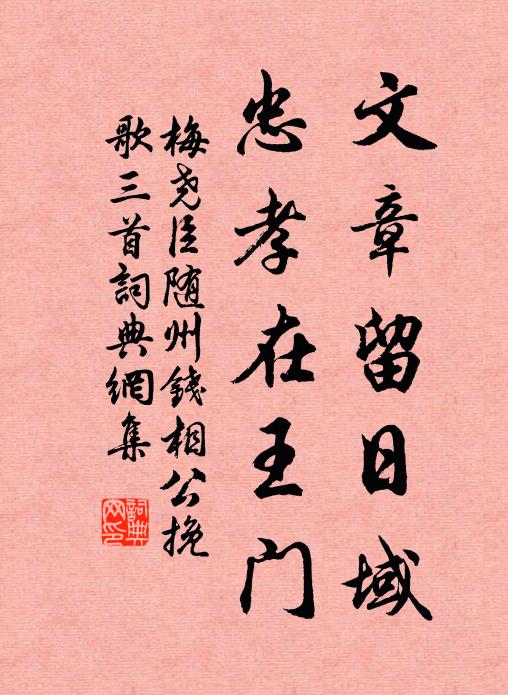 文章留日域
忠孝在王门
梅尧臣随州錢相公挽
歌三首詞典網集
詞典网印